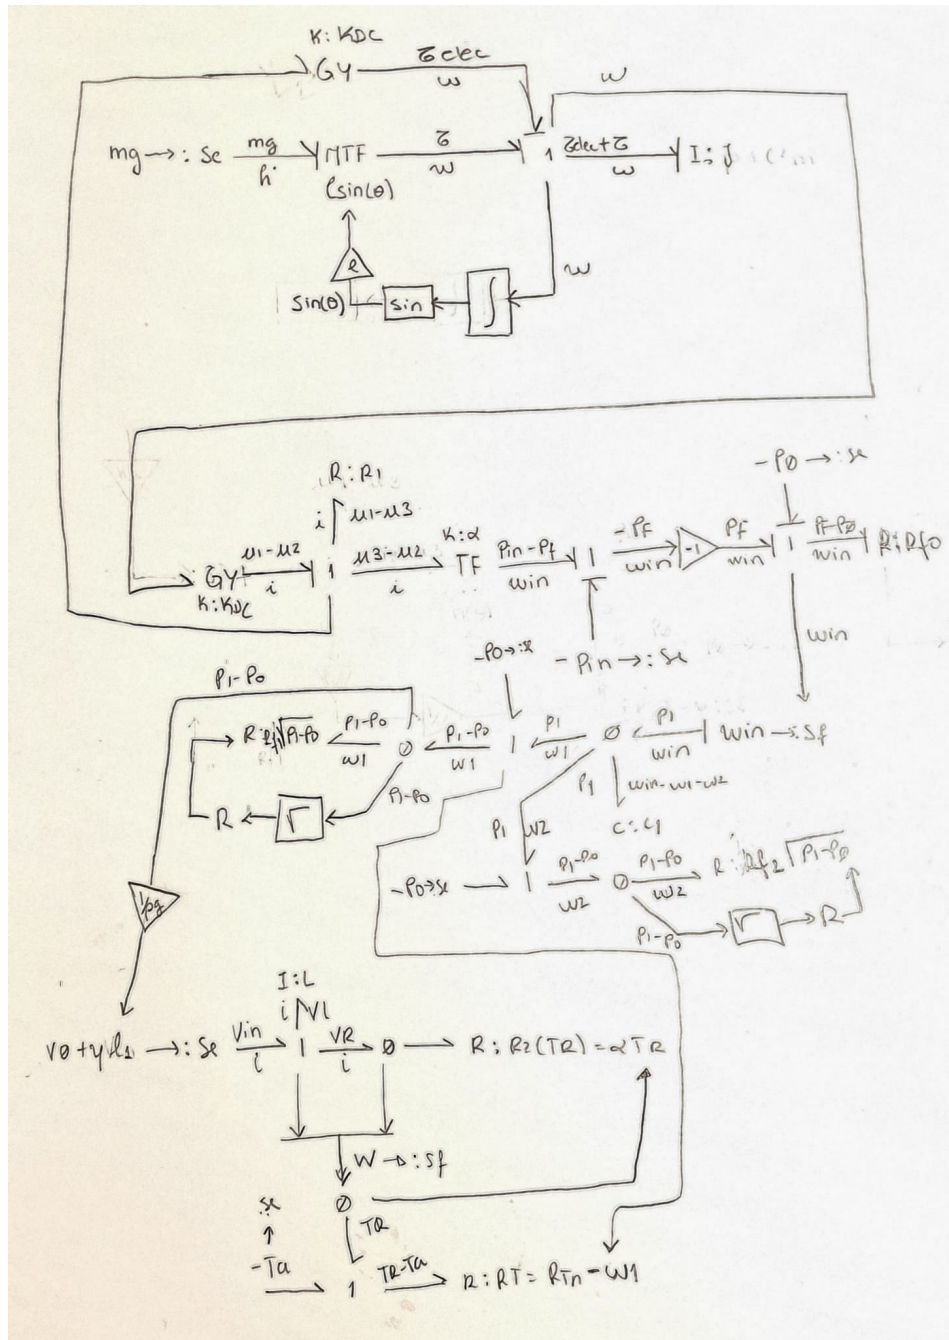 K: KDC
GY
τelec
ω
ω
mg→: Se
mg
ḣ
MTF
τ
ω
1
τelec+τ
ω
I: J
lsin(θ)
l
sin(θ)
sin
∫
ω
-P0→: se
R: R1
i
μ1-μ3
GY
K: KDC
μ1-μ2
i
1
μ3-μ2
i
K: α
TF
Pin-Pf
win
1
-PF
win
-1
PF
win
1
Pf-P0
win
R: Rf0
-P0→: se
-Pin→: Se
win
P1-P0
R: Rf1√P1-P0
P1-P0
w1
0
P1-P0
w1
1
P1
w1
0
P1
win
win→: Sf
P1-P0
R
√
P1
win-w1-w2
P1
w2
C: C1
-P0→se
1
P1-P0
w2
0
P1-P0
w2
R: Rf2√P1-P0
P1-P0
√
R
1/ρg
I: L
i
VL
V0+γh1→: Se
Vin
i
1
VR
i
0
R: R2(TR)=αTR
W→: Sf
se
0
TR
-Ta
1
TR-Ta
R: RT = RTn-w1